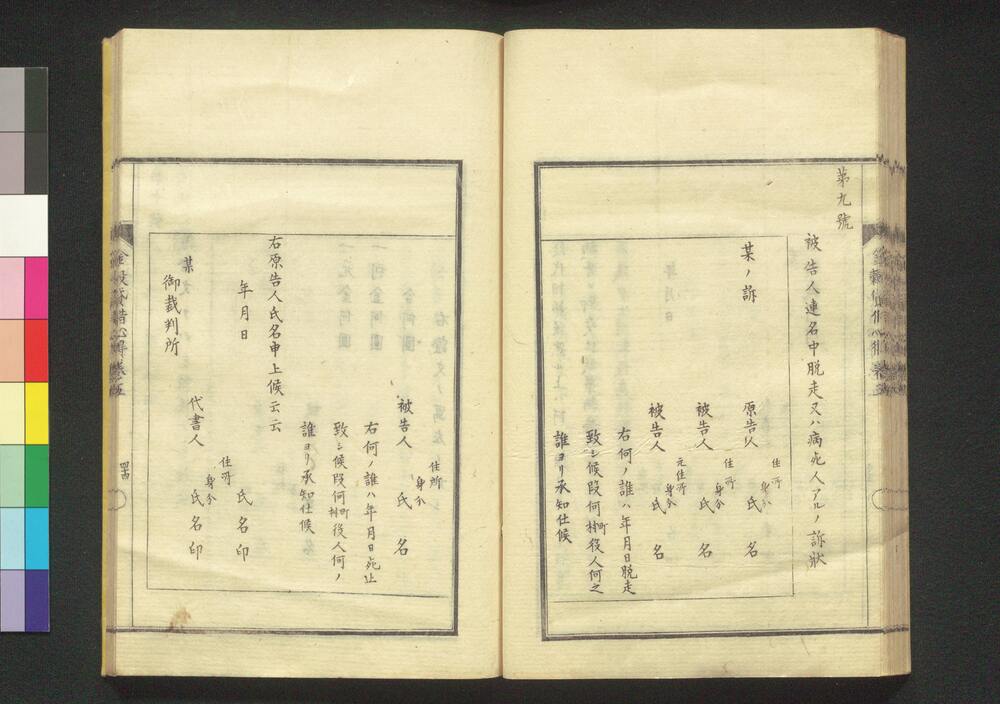 第九號
被告人連名中脱走又ハ病死人アルノ訴状
某ノ訴
住所
身分
原告人 氏名
住所
身分
被告人 氏名
元住所
身分
被告人 氏名
右何ノ誰ハ年月日脱走
致シ候段何町村役人何之
誰ヨリ承知仕候
住所
身分
被告人 氏名
右何ノ誰ハ年月日死止
致シ候段何町村役人何ノ
誰ヨリ承知仕候
右原告人氏名申上候云云
年月日
氏名印
住所
身分
代書人 氏名印
某
御裁判所